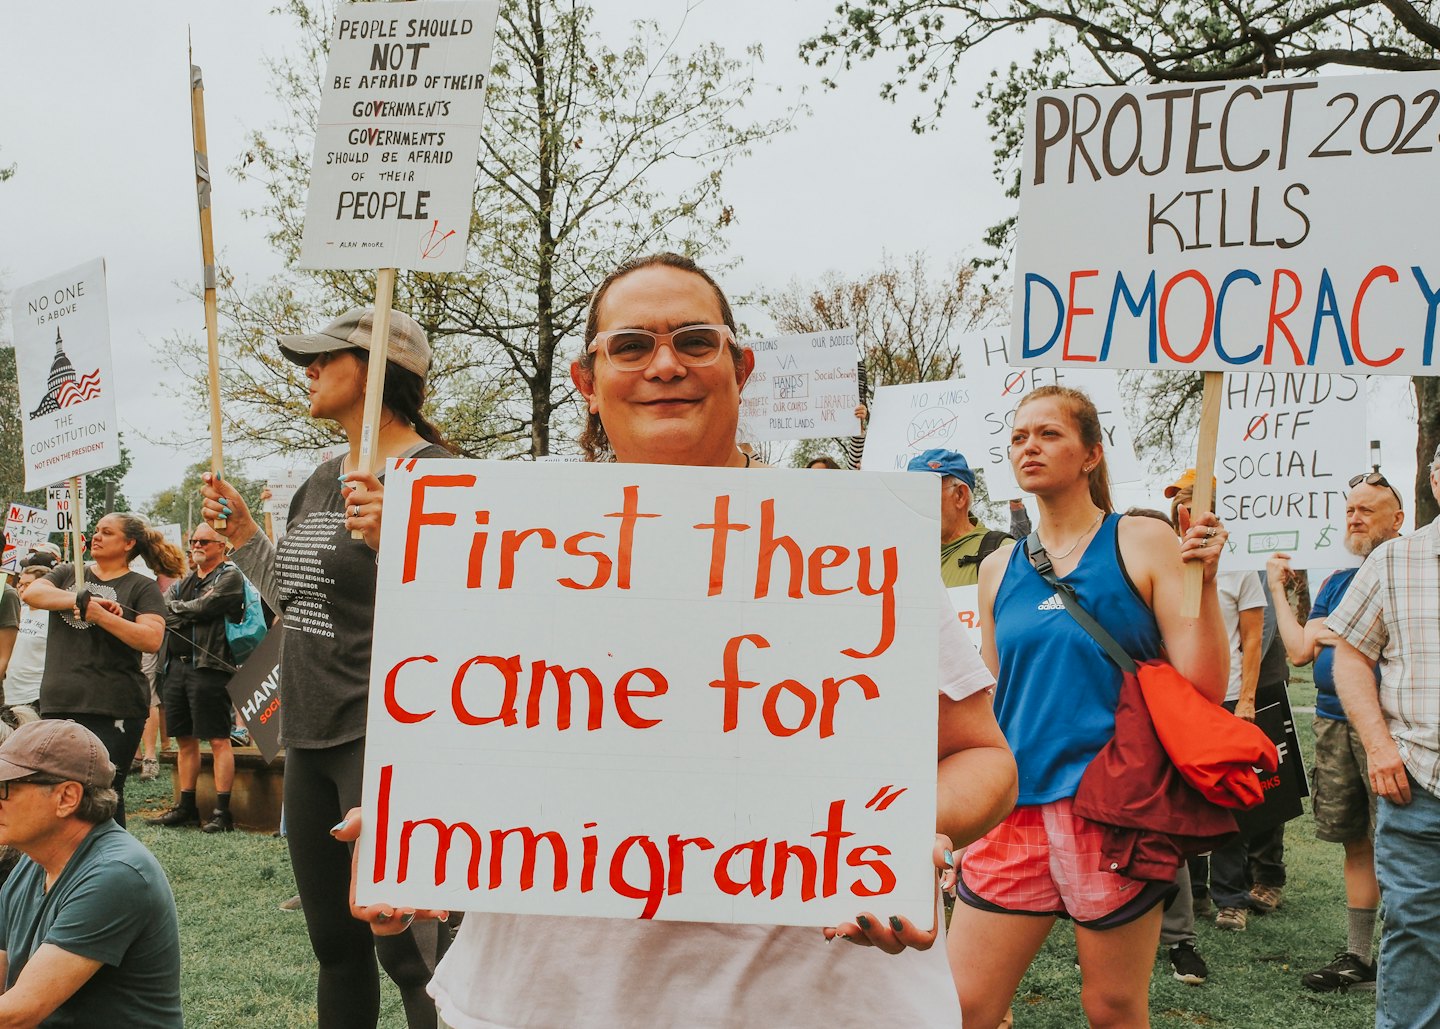 PEOPLE SHOULD
NOT
BE AFRAID OF THEIR
GOVERNMENTS
GOVERNMENTS
SHOULD BE AFRAID
OF THEIR
PEOPLE
- ALAN MOORE
V
NO ONE
IS ABOVE
THE
CONSTITUTION
NOT EVEN THE PRESIDENT
"First they
came for
Immigrants"
PROJECT 202
KILLS
DEMOCRACY
HANDS
OFF
SOCIAL
SECURITY
$ $
VA
OUR BODIES
HANDS
OFF
Social Security
OUR COURTS
LIBRARIES
PUBLIC LANDS
NPR
NO KINGS
H
OFF
SO
adidas
WE A
NO
OK
No King
In
HAN
SOC
NEIGHBOR
NEIGHBOR
NEIGHBOR